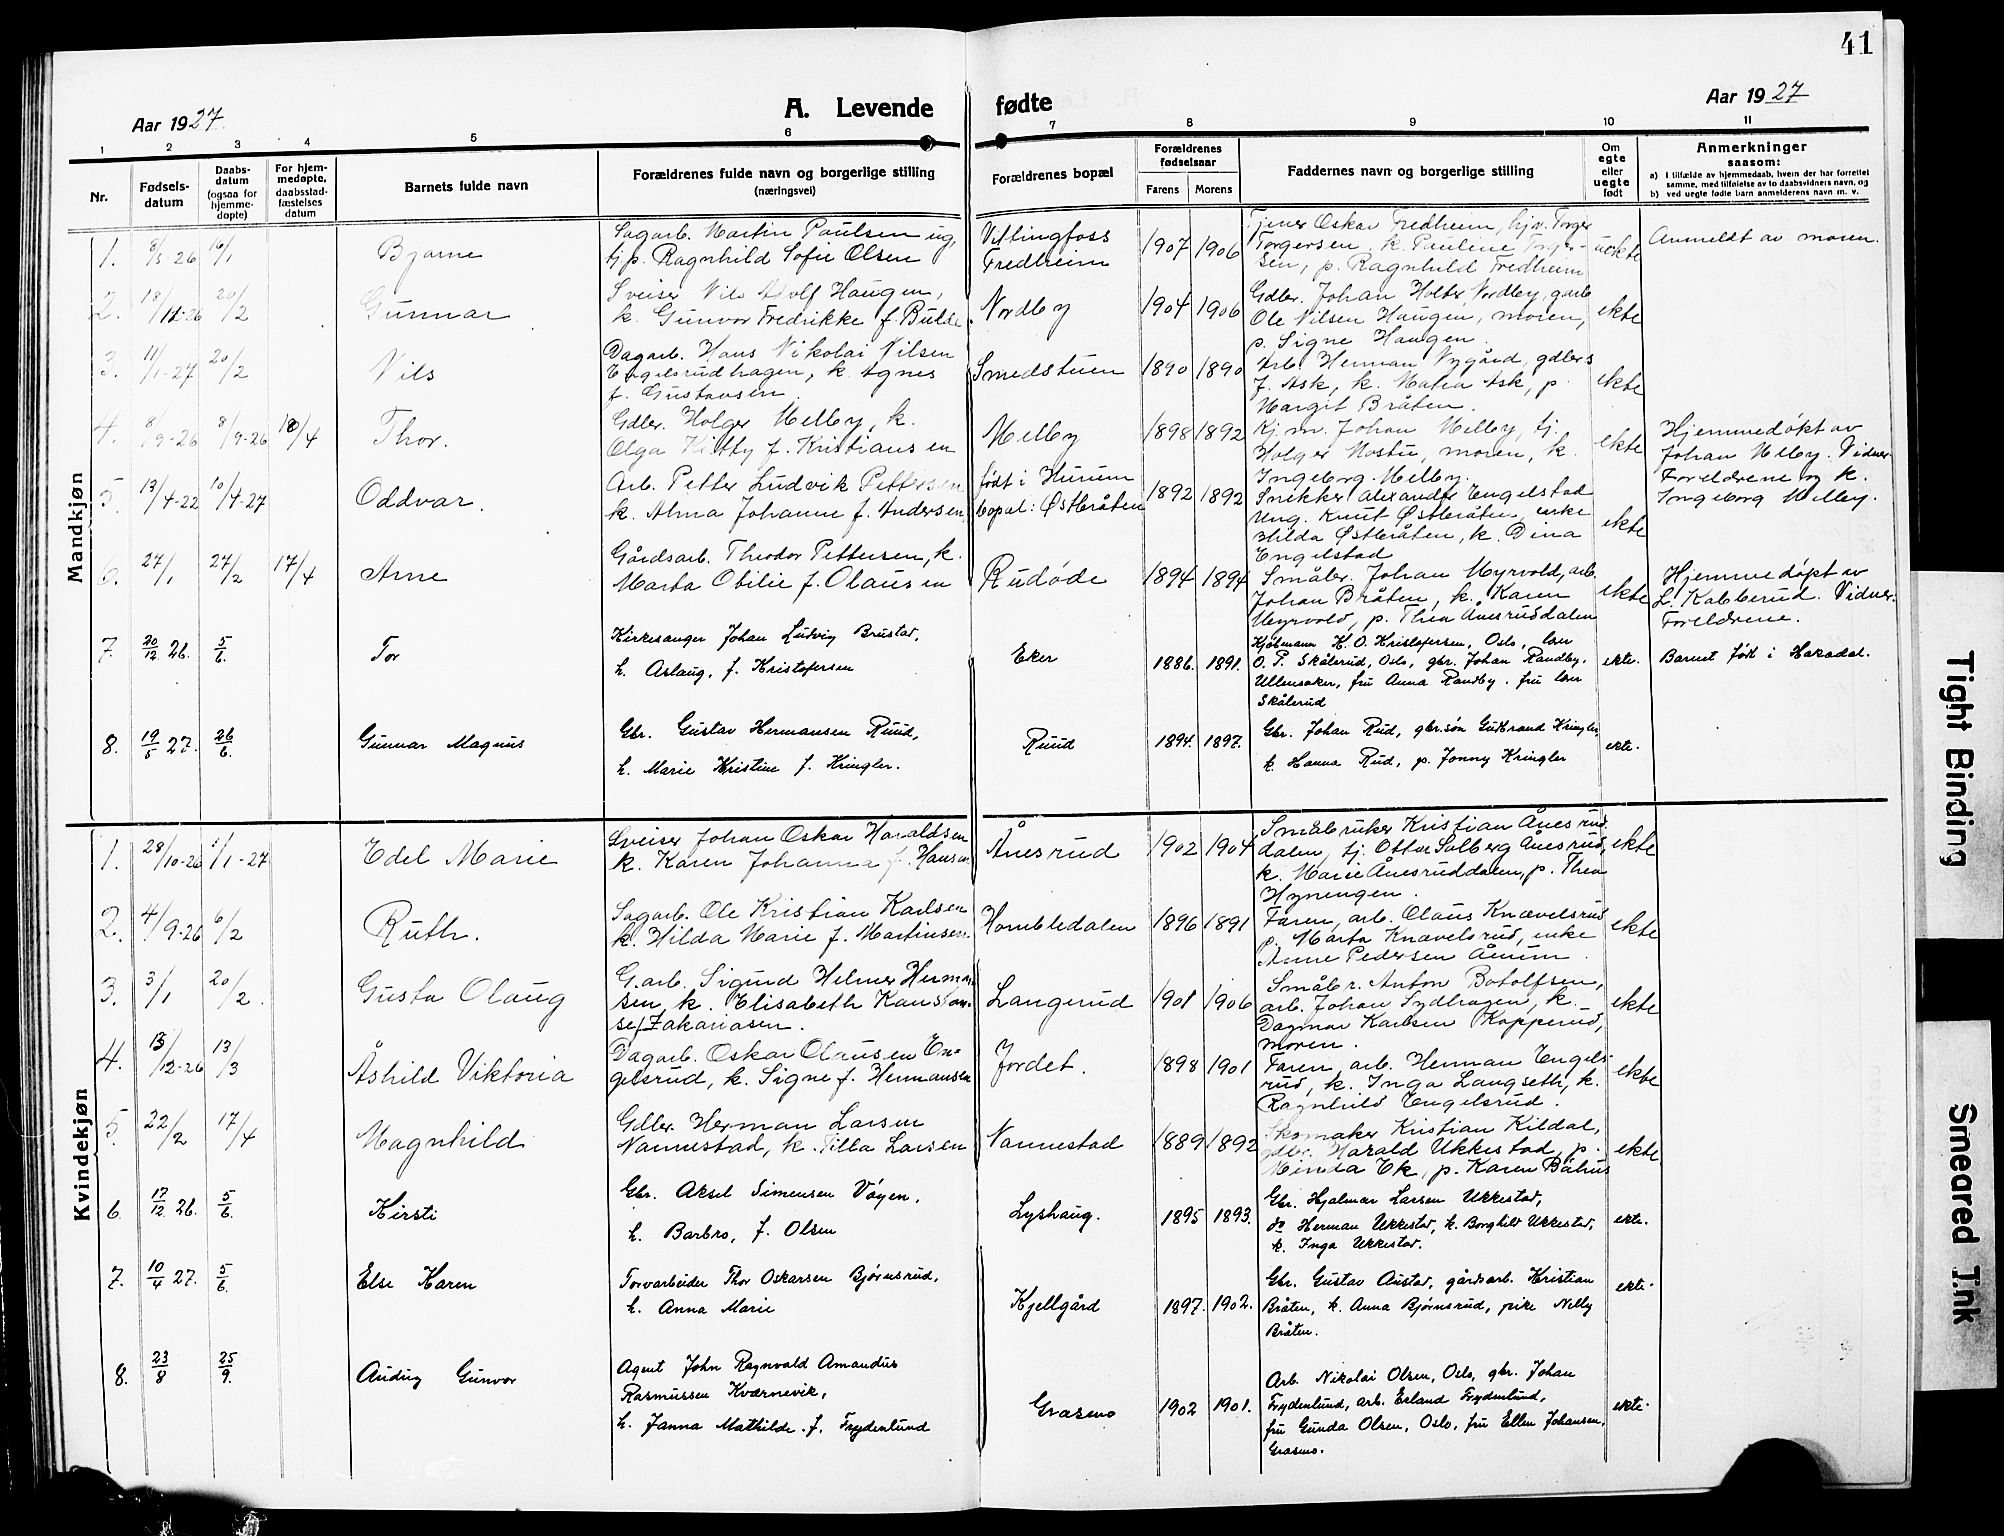 41
Aar 1927.
A. Levende fødte
Aar 1927
1 2 3 4 5 6 7 8 9 10 11
Nr.
Fødsels-
datum
Daabs-
datum
(ogsaa for
hjemme-
døpte)
For hjem-
medøpte,
daabsstad-
fæstelses
datum
Barnets fulde navn
Forældrenes fulde navn og borgerlige stilling
(næringsvei)
Forældrenes bopæl
Forældrenes
fødselsaar
Farens Morens
Faddernes navn og borgerlige stilling
Om
egte
eller
uegte
født
Anmerkninger
saasom:
a) i tilfælde av hjemmedaab, hvem der har forrettet
samme, med tilføielse av to daabsvidners navn, og
b) ved uegte fødte barn anmelderens navn m. v.
Mandkjøn
1. 8/5-26 16/1 Bjarne
Sagarb. Martin Paulsen ug,
tj.p. Ragnhild Sofie Olsen
Vittingfoss
Fredheim
1907 1906
Tjener Oskar Fredheim, hjv. Torger
Torgersen, k. Pauline Torger-
sen, p. Ragnhild Fredheim
uekte
Anmeldt av moren.
2. 18/11-26 20/2 Gunnar
Sveiser Nils Adolf Haugen,
k. Gunvor Fredrikke f. Bulde.
Nordby
1904 1906
Gdbr. Johan Holter Nordby, garb.
Ole Nilsen Haugen, moren,
p. Signe Haugen.
ekte
3. 11/1-27 20/2 Nils
Dagarb. Hans Nikolai Nilsen
Engelsrudhagen, k. Agnes
f. Gustavsen.
Smedstuen
1890 1890
Arb. Herman Nygård, gdbrs
J. Ask, k. Matea Ask, p.
Margit Bråten.
ekte
4. 8/9-26 8/9-26 18/4 Thor.
Gdbr. Holger Melby, k.
Olga Kitty f. Kristiansen
Melby
1898 1892
Kj.m. Johan Melby, tj.
Holger Mostu, moren, k.
Ingeborg Melby.
ekte
Hjemmedøpt av
Johan Melby. Vidner
Foreldrene og k.
Ingeborg Melby.
5. 13/4-22 10/4-27 Oddvar.
Arb. Petter Ludvik Pettersen
k. Alma Johanne f. Andersen
født i Hurum
bopæl: Østbråten
1892 1892
Snikker Alexander Engelstad
Ung. Knut Østbråten, enke
Hilda Østbråten, k. Dina
Engelstad
ekte
6. 27/1 27/2 17/4 Arne
Gårdsarb. Theodor Pettersen, k.
Marta Otilie f. Olausen
Rudøde
1894 1894
Småbr. Johan Myrvold, arb.
Johan Bråten, k. Karen
Myrvold, p. Thea Ånesruddalen
ekte
Hjemmedøpt av
L. Kabberud. Vidner
Foreldrene.
7. 20/12 26. 5/6. Tor
Kirkesanger Johan Ludvig Brustad,
h. Aslaug, f. Kristofersen
Eker
1886. 1891.
Kjøbmann H. O. Kristofersen, Oslo, lærer
O. P. Skålerud, Oslo, gbr. Johan Randby,
Ullensaker, fru Anna Randby. fru lærer
Skålerud
ekte.
Barnet født i Hakadal.
8. 19/5 27. 26/6. Gunnar Magnus
Gbr. Gustav Hermansen Ruud,
h. Marie Kristine f. Kringler.
Ruud
1894. 1897.
Gbr. Johan Rud, gbr.søn Gudbrand Kringler
k. Hanna Rud, p. Jonny Kringler
ekte.
Kvindekjøn
1. 28/10-26 1/1-27 Edel Marie
Sveiser Johan Oskar Haraldsen
k. Karen Johanna f. Hansen
Ånesrud
1902 1904
Småbruker Kristian Ånesrud
dalen, tj. Ottar Solberg Ånesrud,
k. Marie Ånesruddalen, p. Thea
Myrengen.
ekte
2. 4/9-26 6/2 Ruth.
Sagarb. Ole Kristian Karlsen
k. Hilda Marie f. Martinsen.
Hombledalen
1896 1891
Faren, arb. Olaus Knævelsrud
p. Marta Knævelsrud, enke
Anne Pedersen Åmum.
ekte
3. 3/1 20/2. Gusta Olaug
G.arb. Sigurd Helmer Herman-
sen, k. Elisabeth Konstan-
se f Zakariasen.
Langerud
1901 1906
Småbr. Anton Botolfsen,
arb. Johan Sydhagen, k.
Dagmar Karlsen Kopperud,
moren.
ekte
4. 13/12-26 13/3 Åshild Viktoria
Dagarb. Oskar Olausen En-
gelsrud, k. Signe f. Hermansen
Jordet.
1898 1901
Faren, arb. Herman Engels-
rud, k. Inga Langseth, k.
Ragnhild Engelsrud.
ekte
5. 22/2 17/4 Magnhild
Gdbr. Herman Larsen
Nannestad, k. Tilla Larsen
Nannestad
1889 1892
Skomaker Kristian Kildal,
gdbr. Harald Ukkestad, p.
Minda Ek, p. Karen Båhus
ekte.
6. 17/12 26. 5/6. Kirsti
Gbr. Aksel Simensen Vøyen,
h. Barbro, f. Olsen
Lyshaug.
1895 1893.
Gbr. Hjalmar Larsen Ukkestad,
do Herman Ukkestad, k. Borghild Ukkestad,
k. Inga Ukkestad.
ekte.
7. 10/4 27. 5/6. Else Karen
Torvarbeider Thor Oskarsen Bjørnsrud,
h. Anna Marie
Kjellgård
1897. 1902.
Gbr. Gustav Austad, gårdsarb. Kristian
Bråten, k. Anna Bjørnsrud, pike Nelly
Bråten.
ekte.
8. 23/8 25/9. Audny Gunvor
Agent John Ragnvald Amandus
Rasmussen Kværnevik,
h. Janna Mathilde f. Frydenlund
Grasmo
1902 1901.
Arb. Nikolai Olsen, Oslo, gbr. Johan
Frydenlund, arb. Erland Frydenlund,
fru Gunda Olsen, Oslo, fru Ellen Johansen,
Grasmo.
ekte.
Tight Binding
Smeared Ink